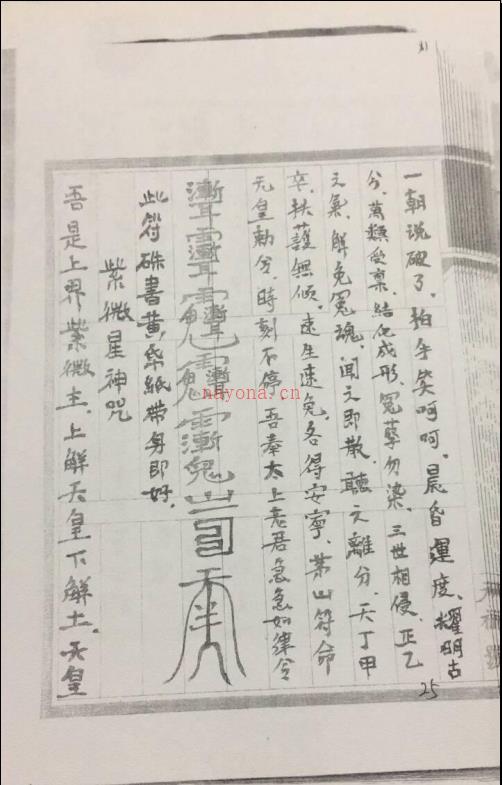 一朝说破了，拍手笑呵呵，晨昏運度，耀明古
分，萬類受稟，結化成形，冤孽勿染，三世相侵，正乙
之氣，解免冤魂，闻之即散，聽之離分，天丁甲
卒，扶護無傾，速生速兔，各得安寧，茅山符命
元皇勅兮，時刻不停，吾奉太上老君急急如律令
此符硃書黄紙带身即好，
紫微星神咒
吾是上界紫微主，上解天皇下解土，天皇
25
nayona.cn